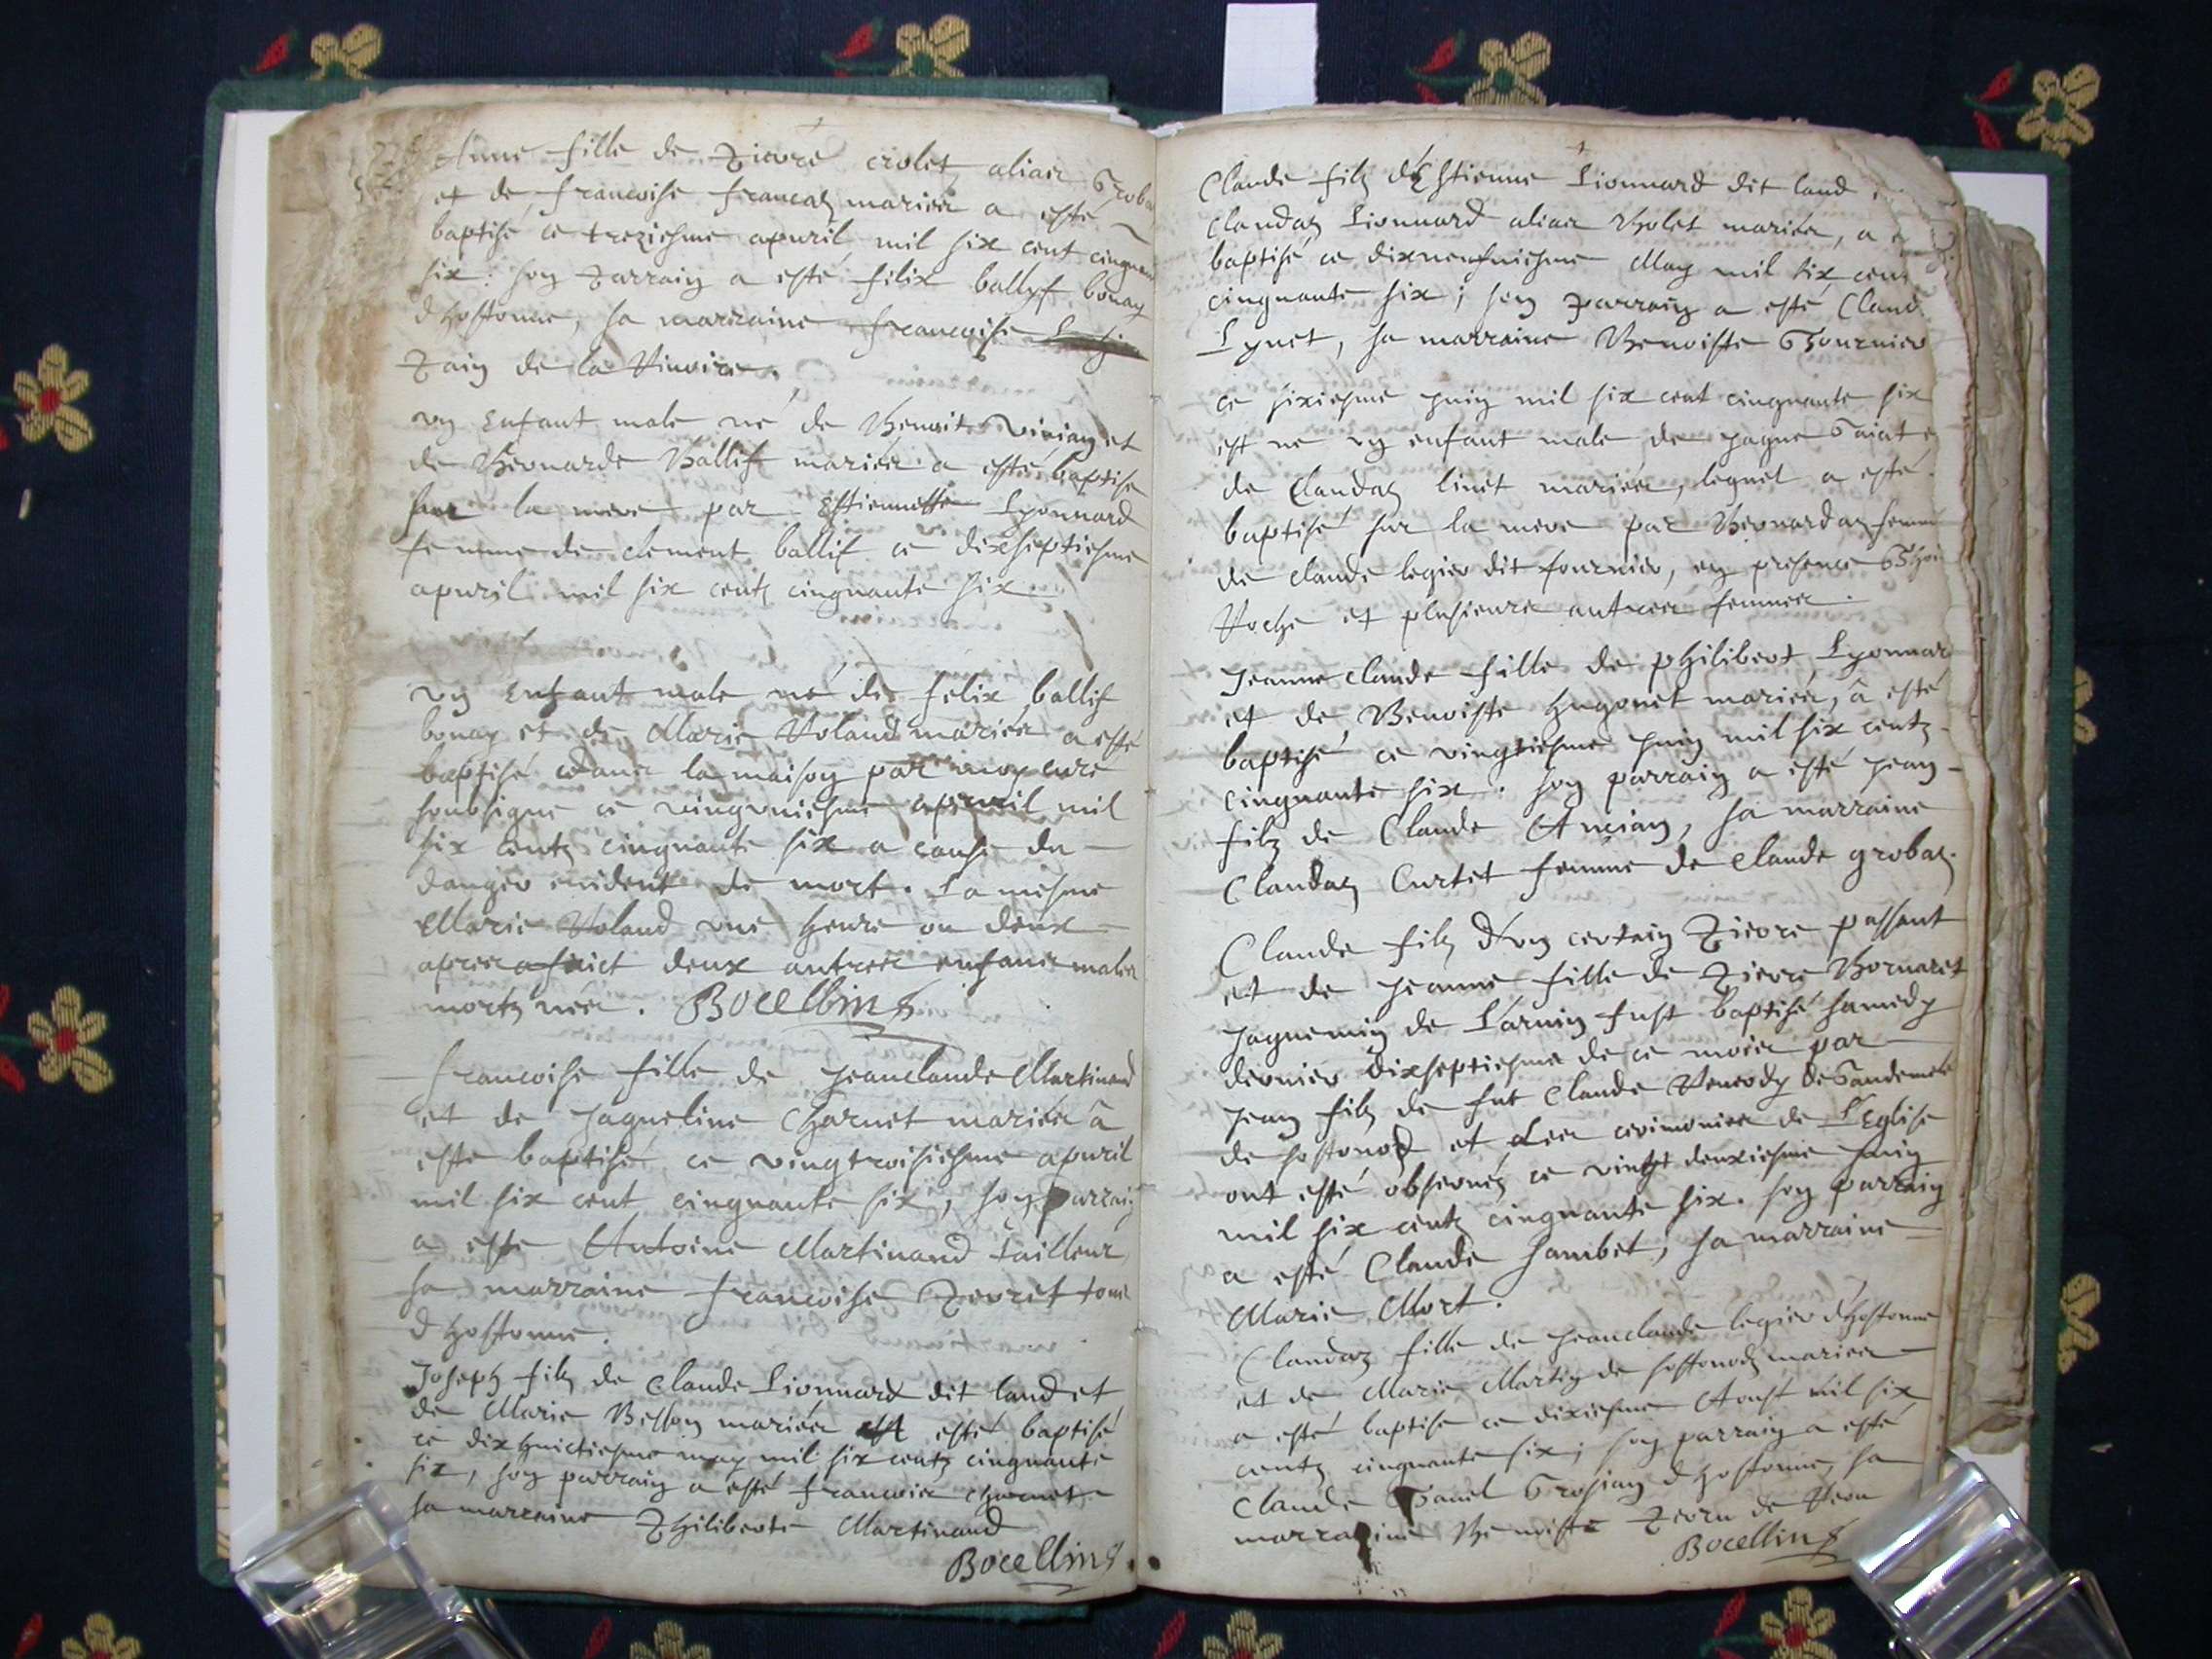 Anne fille de Pierre crolet alias Groba
et de francoise francaz mariés a esté
baptisé ce treziesme apuril mil six cent cinquan
six. son Parrain a esté felix ballyf bonay
d'hostonne, sa marraine francoise
Pain de la Riuoire.
vn Enfant male né de Benoit Viuian et
de Bernarde Ballif mariés a esté baptisé
sur la mere par Estiennette Lyonnard
femme de clement ballif ce dixseptiesme
apuril mil six centz cinquante six.
vn Enfant male né de felix ballif
bonay et de Marie Roland mariés a esté
baptisé dans la maison par moy curé
soubsigne ce vingvniesme apruril mil
six centz cinquante six a cause du
danger euident de mort. La mesme
Marie Roland vne heure ou deux
apres a faict deux autres enfans males
mortz nés. Bocellins
francoise fille de Jeanclaude Martinand
et de Jaqueline Charnet mariés a
esté baptisé ce vingtroisiesme apuril
mil six cent cinquante six, son parrai
a esté Antoine Martinand tailleur
sa marraine francoise Perret tone
d'hostonne.
Joseph filz de Claude Lionnard dit land et
de Marie Besson mariés esté baptisé
ce dixhuictiesme may mil six centz cinquante
six, son parrain a esté francois charnet
sa marraine Philiberte Martinand
Bocellins
Claude filz d'Estienne Lionnard dit land
Claudaz Lionnard alias Rolet mariés, a e
baptisé ce dixneufuiesme May mil six cent
cinquante six; son parrain a esté Claud
Lynet, sa marraine Benoiste Fournier
ce sixiesme juin mil six cent cinquante six
est ne vn enfant male de jaque
de Claudaz linet mariés, lequel a esté
baptisé sur la mere par Bernardaz femm
de claude legier dit fournier, en presence
Roche et plusieurs autres femmes.
Jeanne claude fille de philibert Lyonnar
et de Benoiste hugonet mariés, a esté
baptisé ce vingtiesme juin mil six centz
cinquante six. son parrain a esté jean
filz de Claude Ancian, sa marraine
Claudaz Curtet femme de claude grobaz.
Claude filz d'vn certain Pierre passant
et de jeanne fille de Pierre Bornaret
Jaquemin de Larnin fust baptisé samedy
dernier dixseptiesme de ce mois par
jean filz de fut Claude
de sostonod et les cerimonies de L'Eglise
ont esté obseruéz ce vingt deuxiesme juin
mil six centz cinquante six. son parrain
a esté Claude Jambet, sa marraine
Marie Mort.
Claudaz fille de jeanclaude legier d'hostonne
et de Marie Martin de sostonod mariés
a esté baptisé ce dixiesme Aoust mil six
centz cinquante six; son parrain a esté
Claude Grosjan d'hostonne, sa
marraine Benoiste
Bocellins